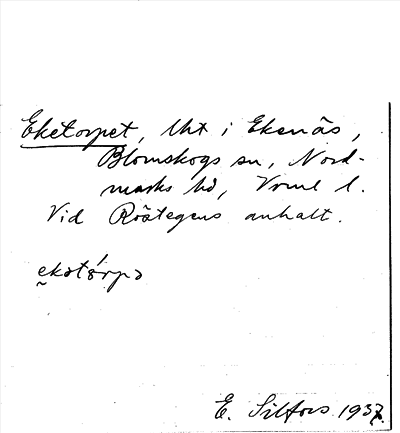 Eketorpet, lht i Ekenäs,
Blomskogs sn, Nord-
marks hd, Vrml l.
Vid Röstegens anhalt.
ekatórpə
E. Silfors 1937.